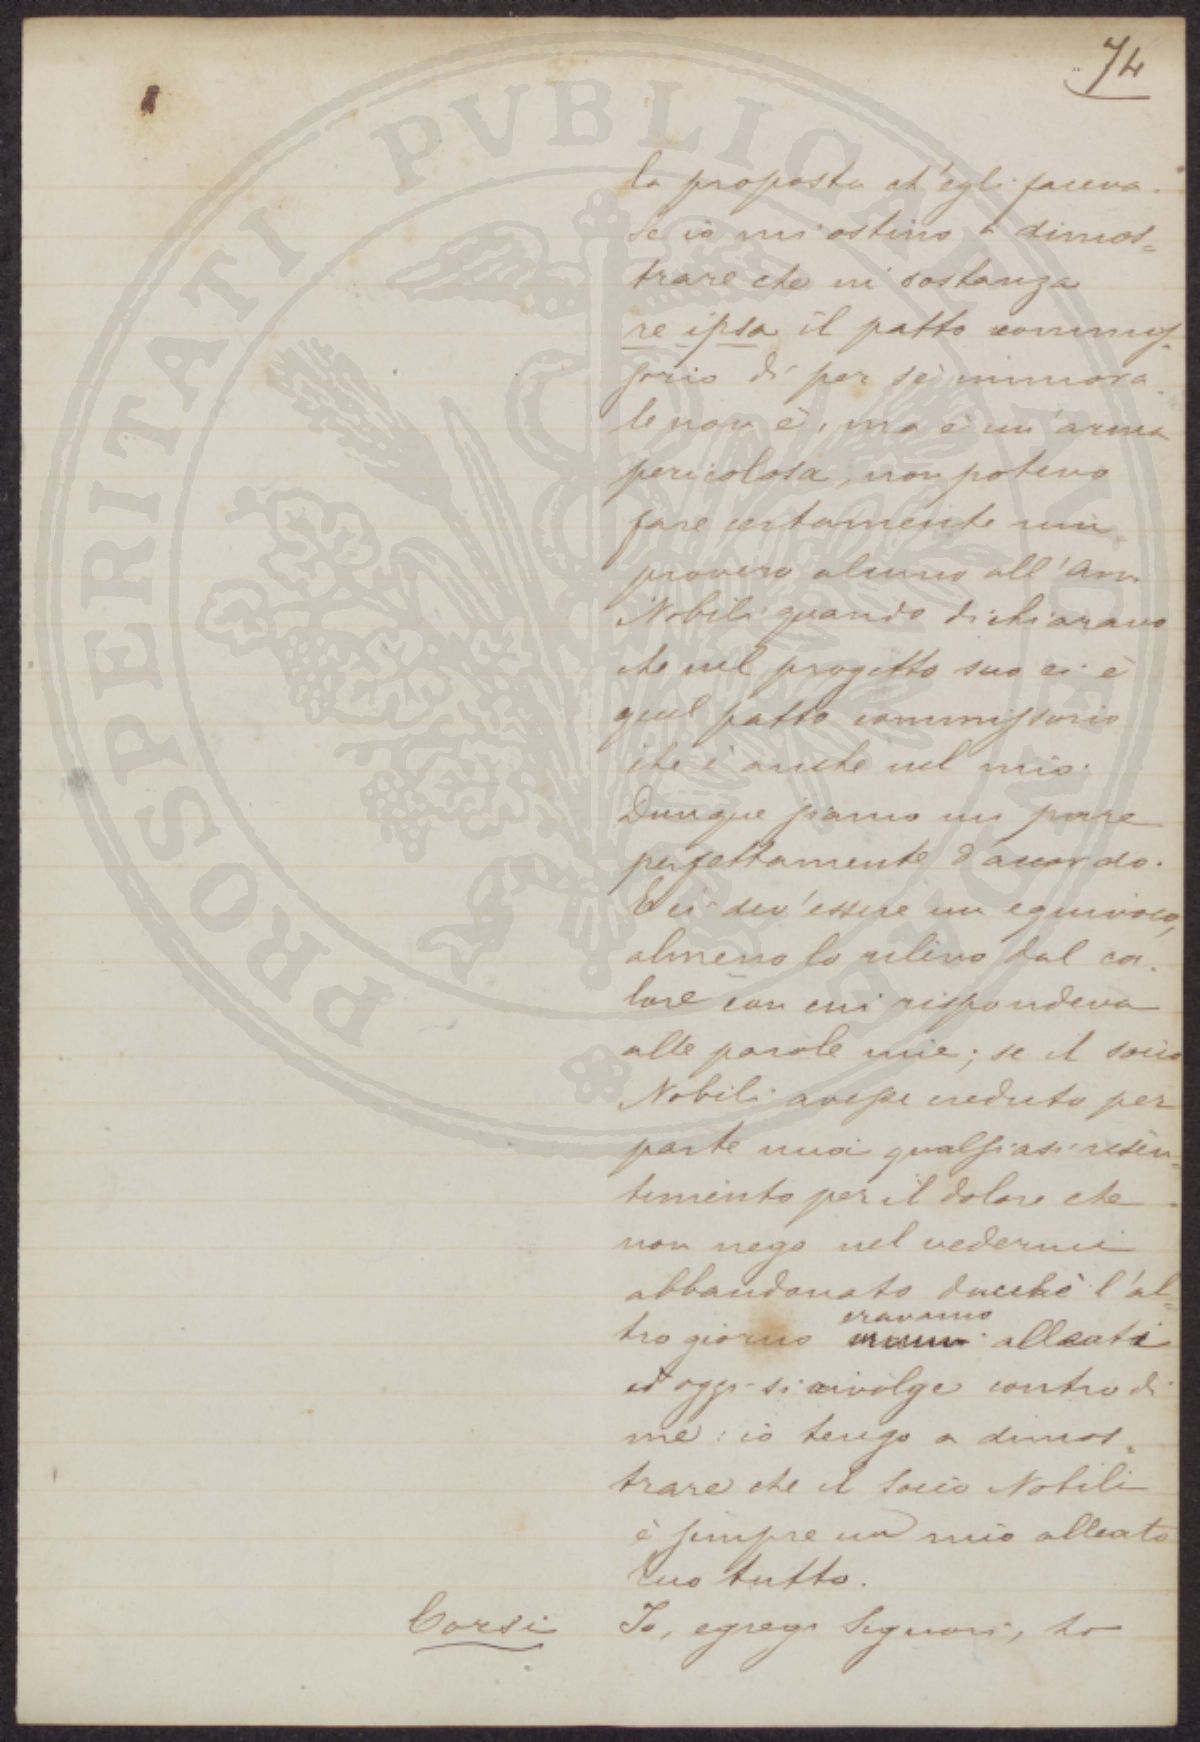 74
la proposta ch'egli faceva.
Se io mi ostino a dimos=
trare che in sostanza
re ipsa il patto commis-
sorio di per sè immora
le non è, ma è un'arma
pericolosa, non potevo
fare certamente rim
provero alcuno all'Avv.
Nobili quando dichiaravo
che nel progetto suo ci è
quel patto commissorio
che è anche nel mio.
Dunque siamo mi pare
perfettamente d'accordo.
E ci dev'essere un equivoco,
almeno lo rilevo dal ca.
lore con cui rispondeva
alle parole mie; se il socio
Nobili avesse creduto per
parte mia qualsiasi risen=
timento per il dolore che
non nego nel vedermi
abbandonato dacchè l'al=
tro giorno eravamo alleati
ed oggi si rivolge contro di
me: io tengo a dimos=
trare che il Socio Nobili
è sempre un mio alleato
tutto.
Corsi Io, egregi Signori, ho
PROSPERITATI PVBLICAE